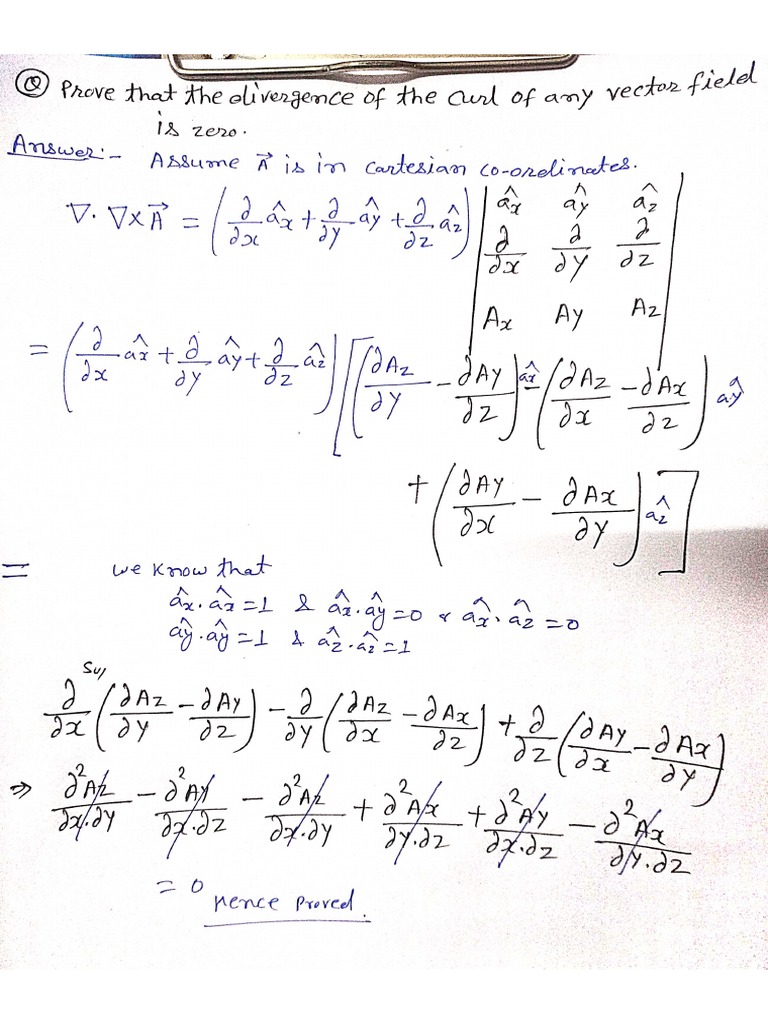 Q Prove that the divergence of the curl of any vector field
is zero.
Answer:- Assume A⃗ is in cartesian co-ordinates.
∇. ∇×A⃗ = (∂/∂x âx + ∂/∂y ây + ∂/∂z âz) | âx ây âz
∂/∂x ∂/∂y ∂/∂z
Ax Ay Az |
= (∂/∂x âx + ∂/∂y ây + ∂/∂z âz) [(∂Az/∂y - ∂Ay/∂z) âx - (∂Az/∂x - ∂Ax/∂z) ây
+ (∂Ay/∂x - ∂Ax/∂y) âz]
= we know that
âx.âx=1 & âx.ây=0 & âx.âz=0
ây.ây=1 & âz.âz=1
So,
∂/∂x (∂Az/∂y - ∂Ay/∂z) - ∂/∂y (∂Az/∂x - ∂Ax/∂z) + ∂/∂z (∂Ay/∂x - ∂Ax/∂y)
⇒ ∂²Az/∂x.∂y - ∂²Ay/∂x.∂z - ∂²Az/∂x.∂y + ∂²Ax/∂y.∂z + ∂²Ay/∂x.∂z - ∂²Ax/∂y.∂z
= 0
Hence Proved.